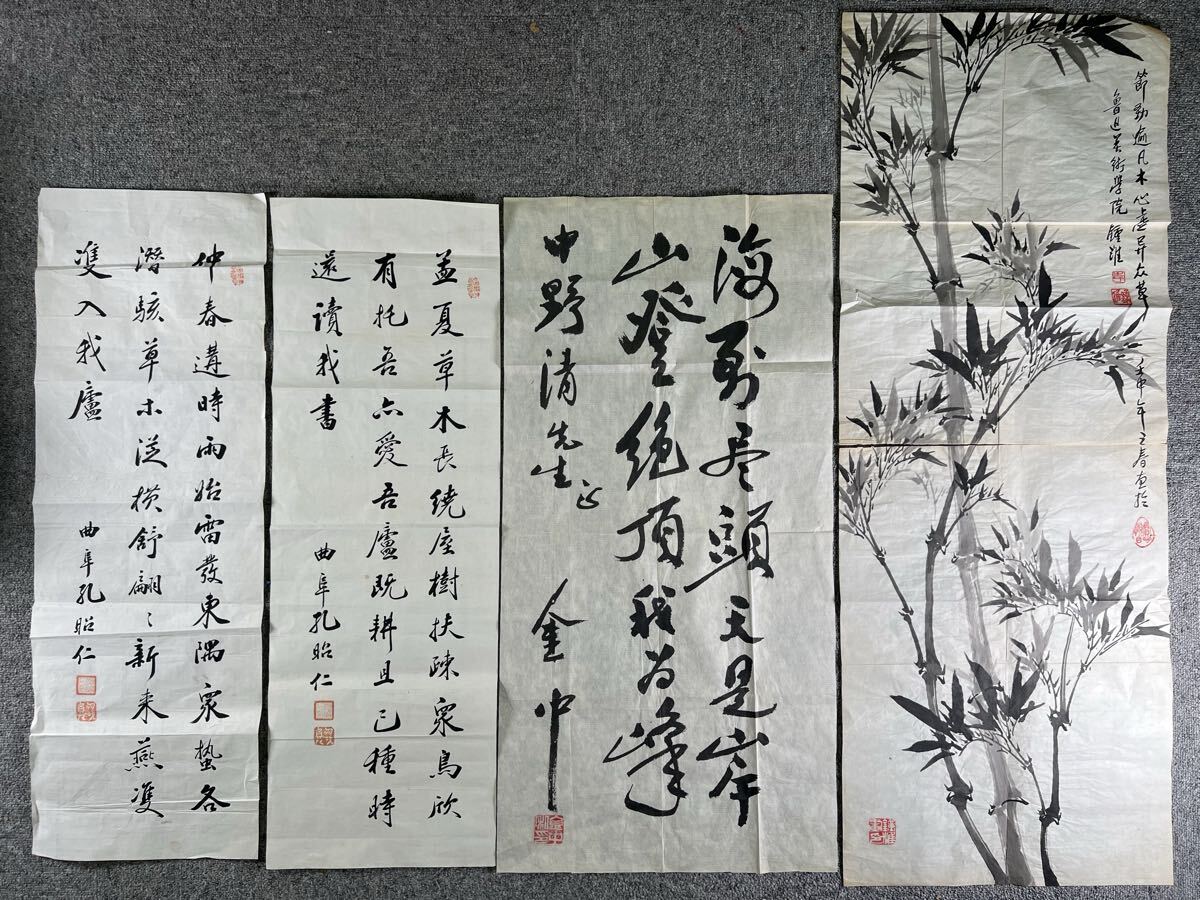 節勁逾凡木心虛异众草 壬申年立春画於
魯迅美術學院 鍾維
海到尽頭天是岸
山登絶頂我为峰
中野清先生正
金中
孟夏草木長繞屋樹扶疎衆鳥欣
有托吾亦愛吾廬既耕且已種時
還讀我書
曲阜孔昭仁
仲春遘時雨始雷發東隅衆蛰各
潛駭草木從横舒翩〻新来燕雙
雙入我廬
曲阜孔昭仁